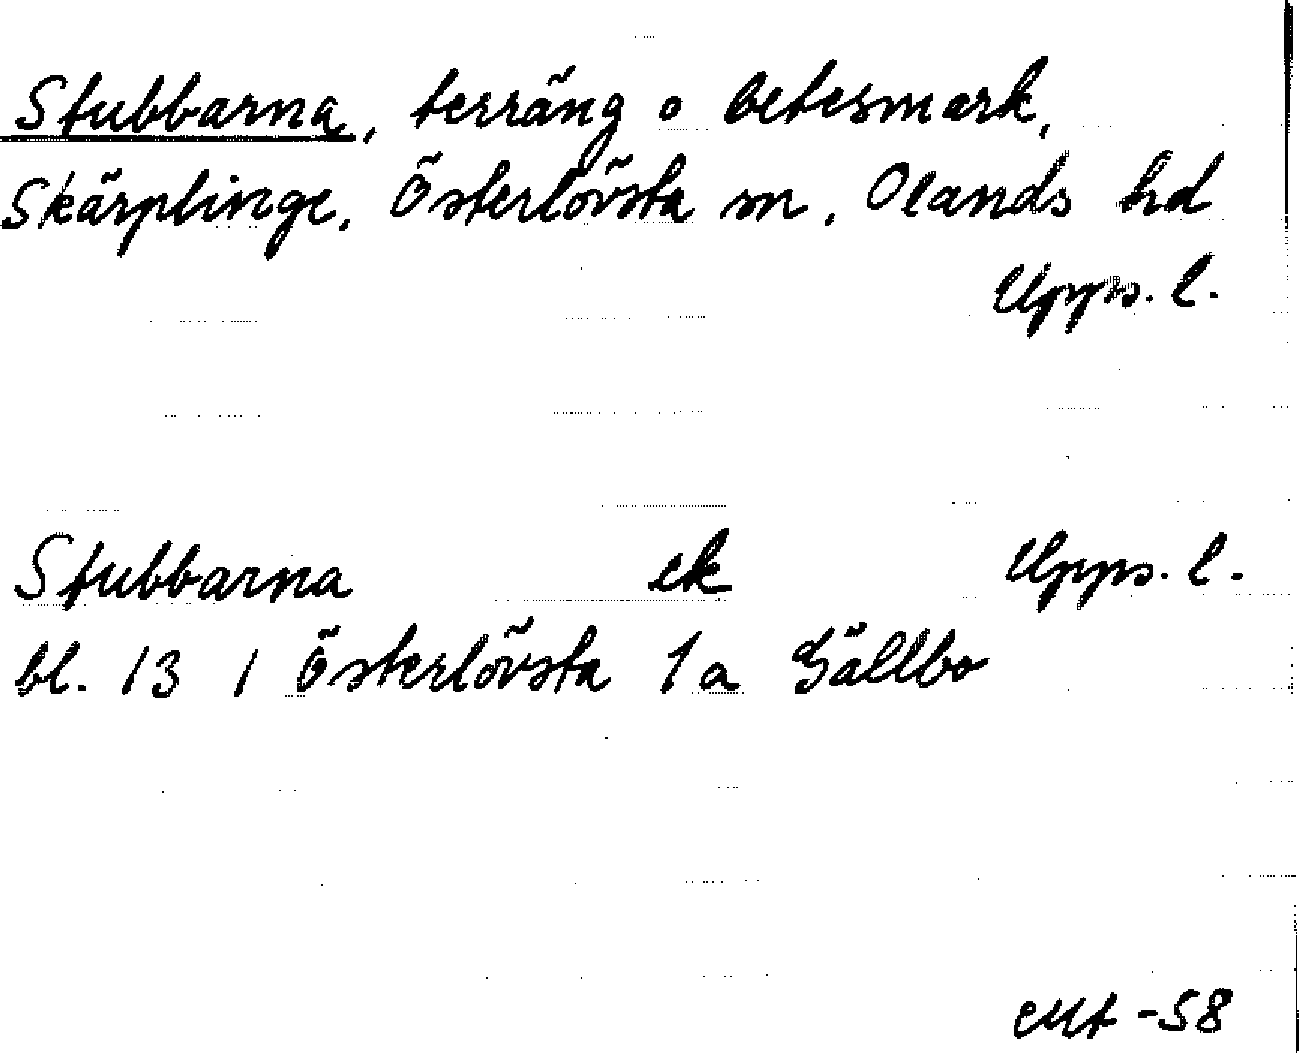 Stubbarna, terräng o betesmark,
Skärplinge, Österlövsta sn, Olands hd
Upps. l.
Stubbarna ek Upps. l.
bl. 13 1 Österlövsta 1a Gällbo
-58